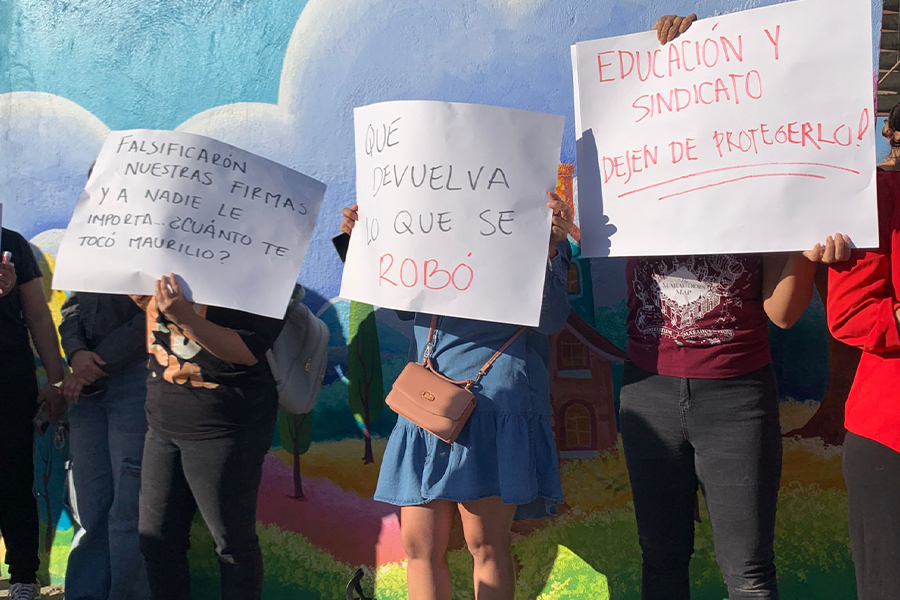 FALSIFICARÓN
NUESTRAS FIRMAS
Y A NADIE LE
IMPORTA... ¿CUÁNTO TE
TOCÓ MAURILIO?
QUE
DEVUELVA
LO QUE SE
ROBÓ
EDUCACIÓN Y
SINDICATO
DEJEN DE PROTEGERLO!
MARAUDER'S
MAP